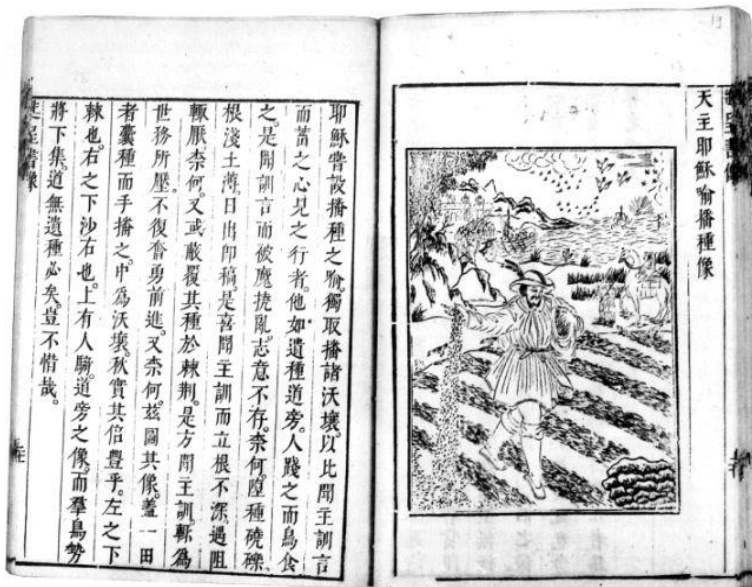 19
進呈書像
天主耶穌喻播種像
耶穌嘗設播種之喻。獨取播諸沃壤。以比聞主訓言
而蓄之心見之行者。他如遺種道旁。人踐之而鳥食
之。是聞訓言而被魔撓亂。志意不存。柰何。墮種磽礫
根淺土薄。日出卽稿。是喜聞主訓而立根不深。遇阻
輒厭。柰何。又或蔽覆其種於棘荆。是方聞主訓。為
世務所壓。不復奮勇前進。又柰何。茲圖其像。葢一田
者囊種而手播之。中為沃壤。秋實其倍豐乎。左之下
棘也。右之下沙右也。上有人騎。道旁之像。而羣鳥勢
將下集。道無遺種必矣。豈不惜哉。
進呈書像